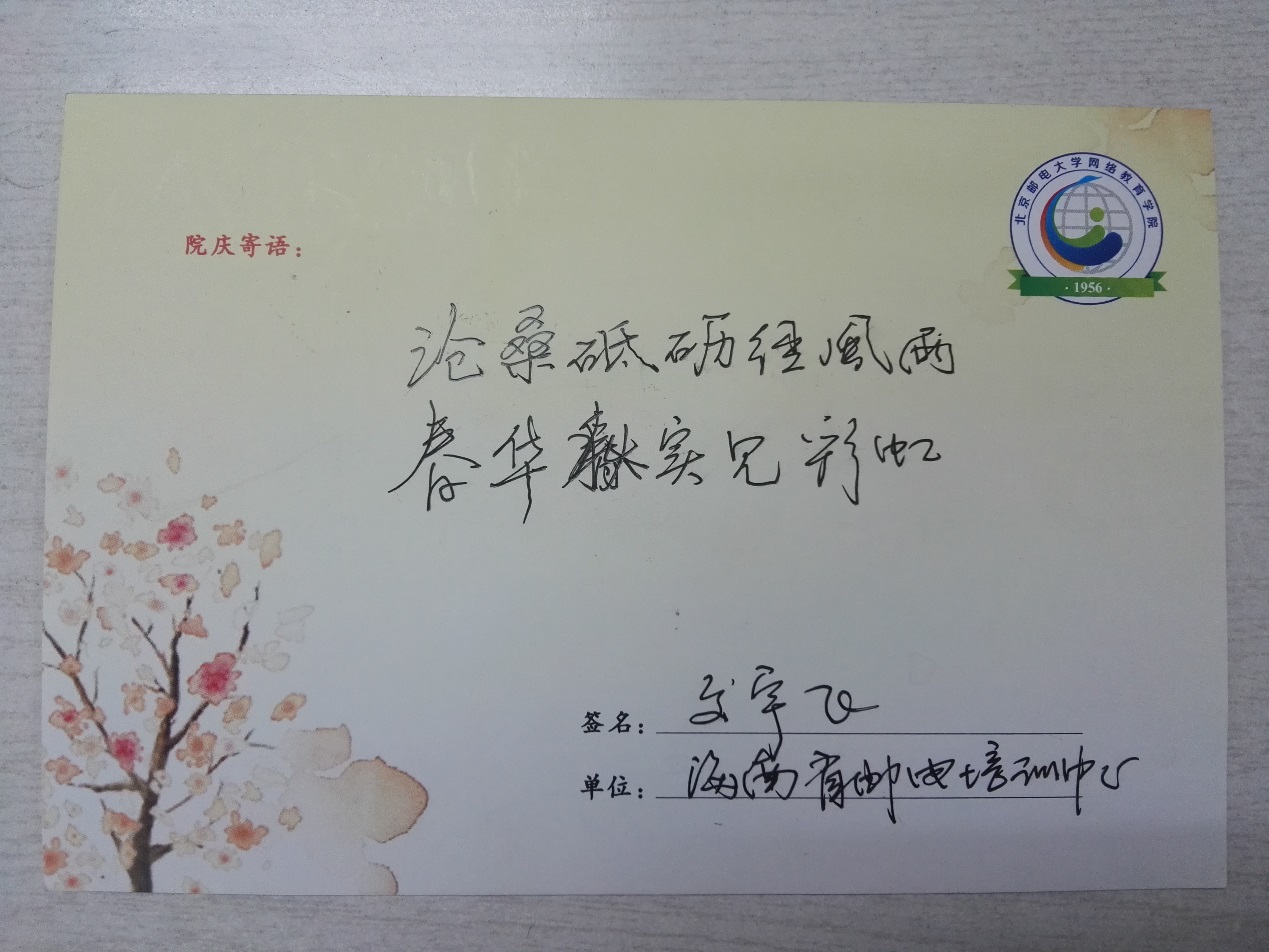 北京邮电大学网络教育学院
·1956·
院庆寄语：
沧桑砥砺经风雨
春华秋实见彩虹
签名：宇飞
单位：海南省邮电培训中心